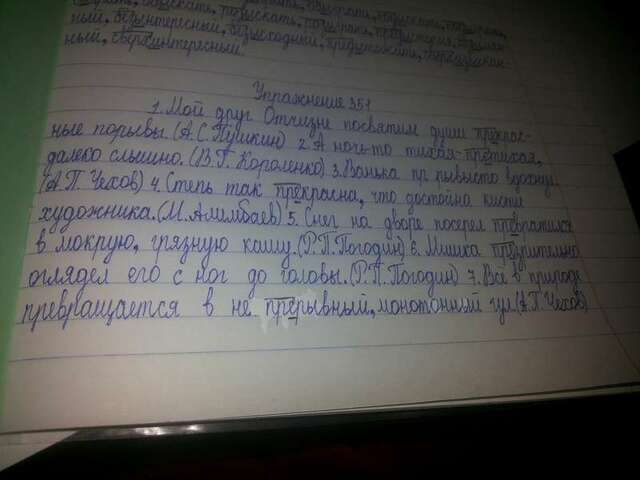 ный, безынтересный, безысходный, предыстория,
ный, сверхинтересный.
Упражнение 351
1. Мой друг Отчизне посвятим души прекрас-
ные порывы. (А.С.Пушкин) 2. А ночь-то тихая-претихая,
далеко слышно. (В.Г. Короленко) 3. Ванька пр рывисто вздохнул
(А.П. Чехов) 4. Степь так прекрасна, что достойна кисти
художника. (М. Алимбаев) 5. Снег на дворе посерел превратился
в мокрую, грязную кашу. (Р.П.Погодин) 6. Мишка презрительно
оглядел его с ног до головы. (Р.П. Погодин) 7. Всё в природе
превращается в не прерывный, монотонный гул (А.П.Чехов)